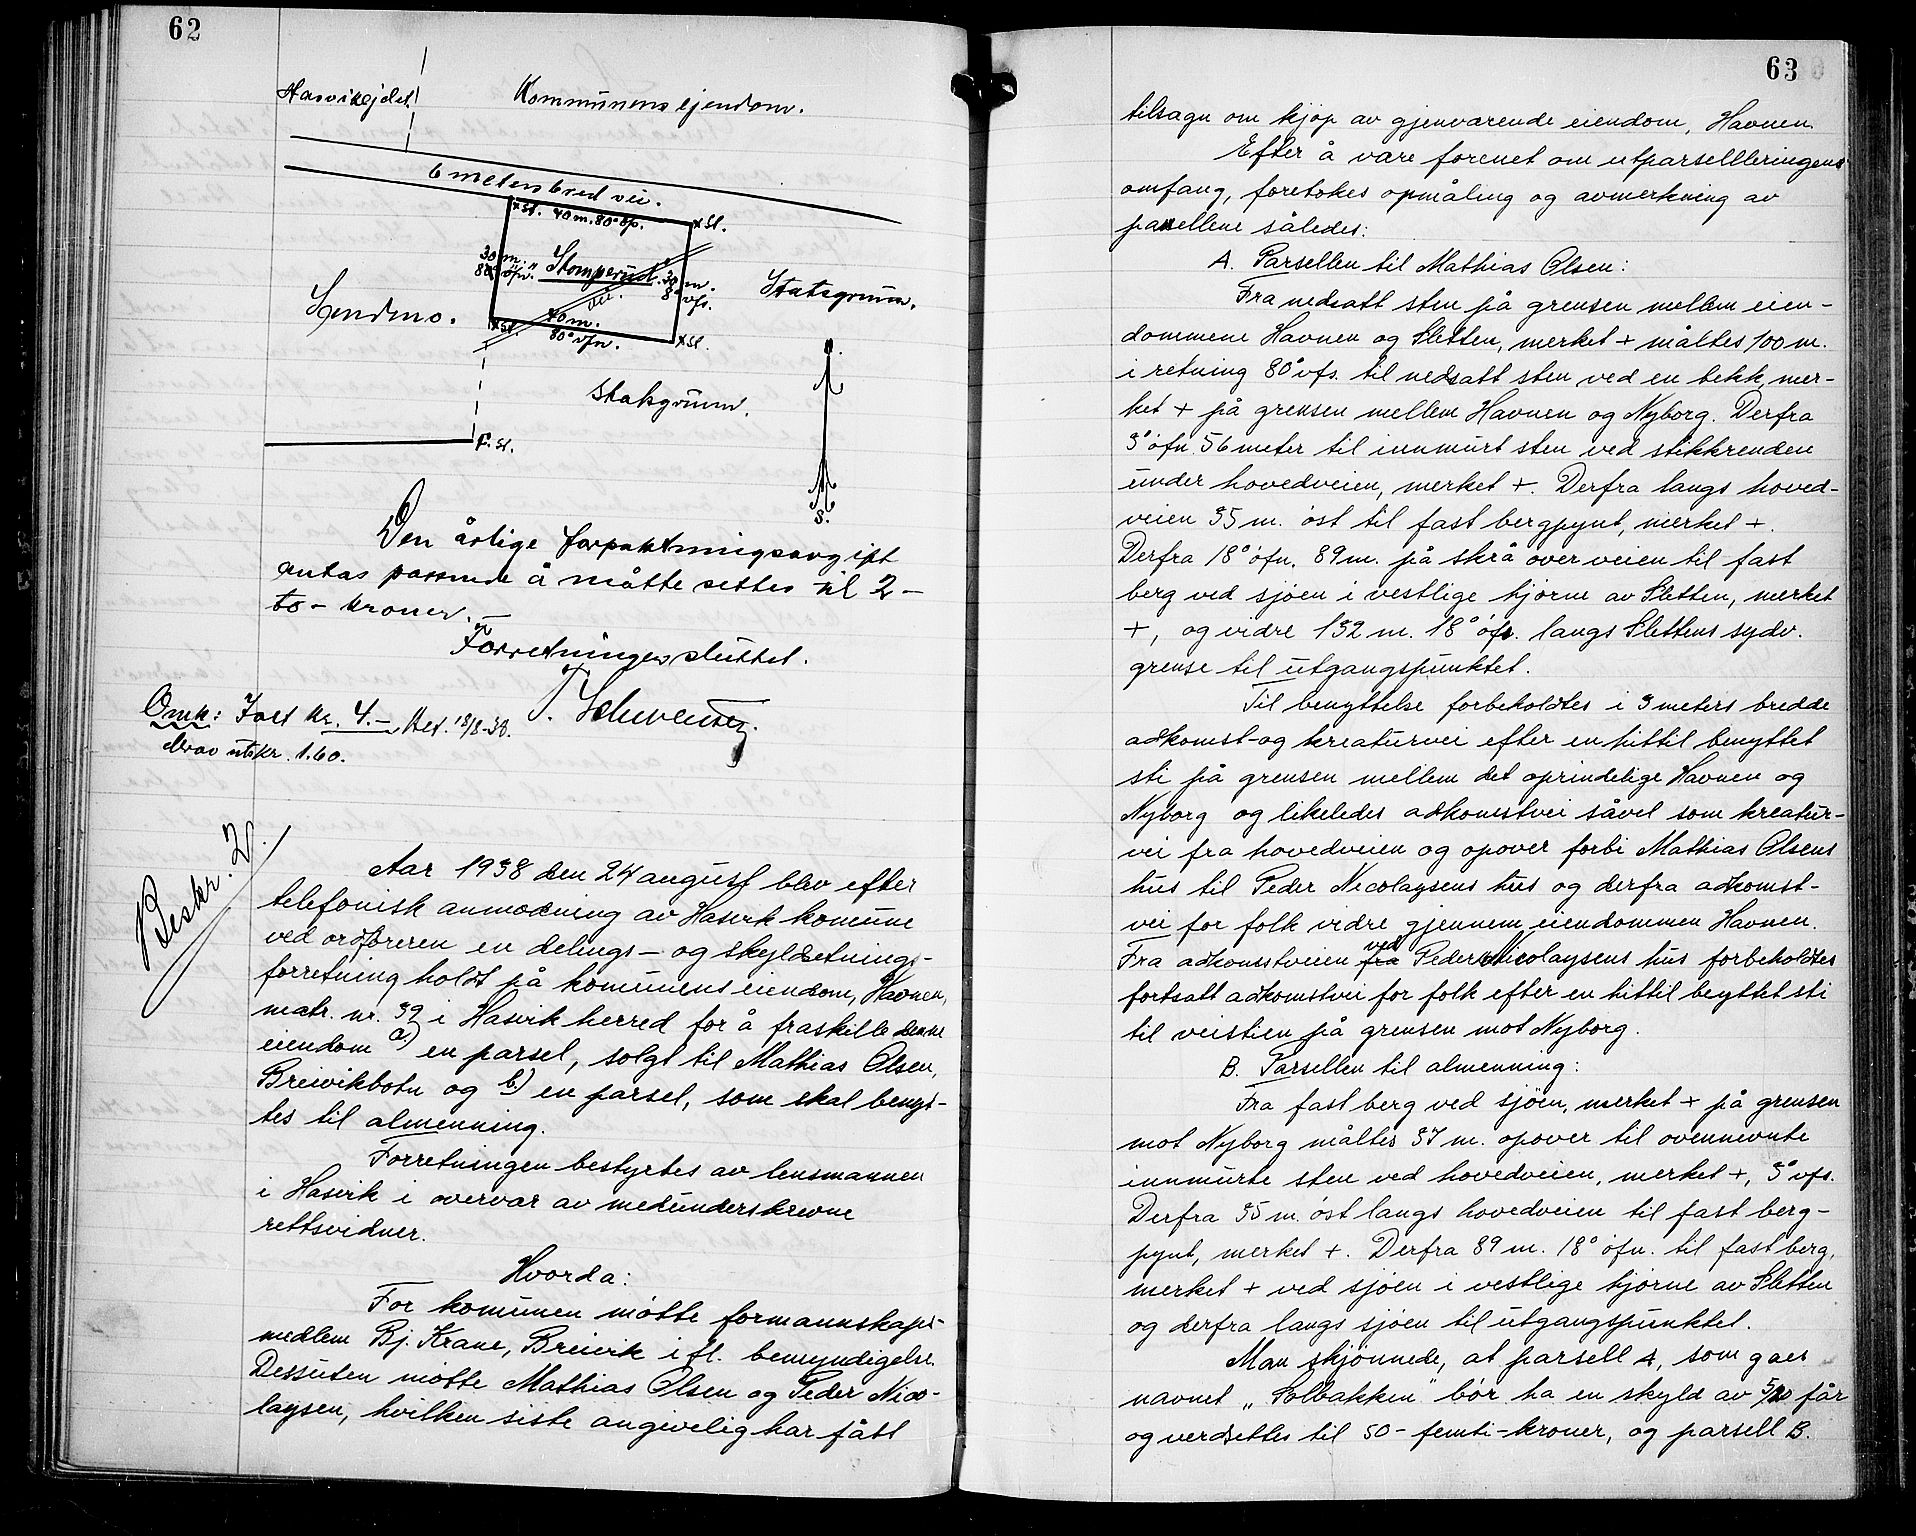 62
Hasvikejdet
Kommunens ejendom.
6 meters bred vei.
+ St. 40 m. 80° öp. + St.
30 m. "Stomperud" 30 m.
80° öfn. 8° vfs.
vei.
Sendmo.
Statsgrunn.
+ St. 40 m.
80° vfn. + St.
Statsgrunn.
F. St.
S.
Den årlige forpaktningsavgift
antas passende å måtte settes til 2 –
to – kroner. –
Forretningen sluttet.
Omk: Fort kr. 4. –
derav utskr. 1.60.
Beskr. 2.
Aar 1938 den 24 august blev efter
telefonisk anmodning av Hasvik komune
ved ordföreren en delings – og skyldsetnings-
forretning holdt på komunens eiendom, Havnen,
matr. nr. 39 i Hasvik herred for å fraskille denne
eiendom a) en parsel, solgt til Mathias Olsen,
Breivikbotn og b) en parsel, som skal benyt-
tes til almenning.
Forretningen bestyrtes av lensmannen
i Hasvik i overvær av medunderskrevne
rettsvidner.
Hvorda:
For komunen mötte formannskaps-
medlem Bj. Krane, Breivik ifl. bemyndigelse.
Dessuten mötte Mathias Olsen og Peder Nico-
laysen, hvilken siste angivelig har fått
63
tilsagn om kjöp av gjenværende eiendom, Havnen.
Efter å være forenet om utparsellleringens
omfang, foretokes opmåling og avmerkning av
parsellene således:
A. Parsellen til Mathias Olsen:
Fra nedsatt sten på grensen mellem eien-
dommene Havnen og Sletten, merket + måltes 100 m.
i retning 80° vfs. til nedsatt sten ved en bekk, mer-
ket + på grensen mellem Havnen og Nyborg. Derfra
3° öfn 56 meter til innmurt sten ved stikkrenden
under hovedveien, merket +. Derfra langs hoved-
veien 35 m. öst til fast bergpynt, merket +.
Derfra 18° öfn. 89 m. på skrå over veien til fast
berg ved sjöen i vestlige hjörne av Sletten, merket
+, og vidre 132 m. 18° öfs. langs Slettens sydv.
grense til utgangspunktet.
Til benyttelse forbeholdtes i 3 meters bredde
adkomst- og kreaturvei efter en hittil benyttet
sti på grensen mellem det oprindelige Havnen og
Nyborg og likeledes adkomstvei såvel som kreatur-
vei fra hovedveien og opover forbi Mathias Olsens
hus til Peder Nicolaysens hus og derfra adkomst-
vei for folk vidre gjennem eiendommen Havnen.
Fra adkomstveien fra ved Peder Nicolaysens hus forbeholdtes
fortsatt adkomstvei for folk efter en hittil beyttet sti
til veistien på grensen mot Nyborg.
B. Parsellen til almenning:
Fra fast berg ved sjöen, merket + på grensen
mot Nyborg måltes 37 m. opover til ovennevnte
innmurte sten ved hovedveien, merket +, 3° vfs.
Derfra 35 m. öst langs hovedveien til fast berg-
pynt, merket +. Derfra 89 m. 18° öfn. til fast berg,
merket + ved sjöen i vestlige hjörne av Sletten
og derfra langs sjöen til utgangspunktet.
Man skjönnede, at parsell A, som gaes
navnet „Solbakken" bör ha en skyld av 5/20 får
og verdsettes til 50 – femti – kroner, og parsell B.